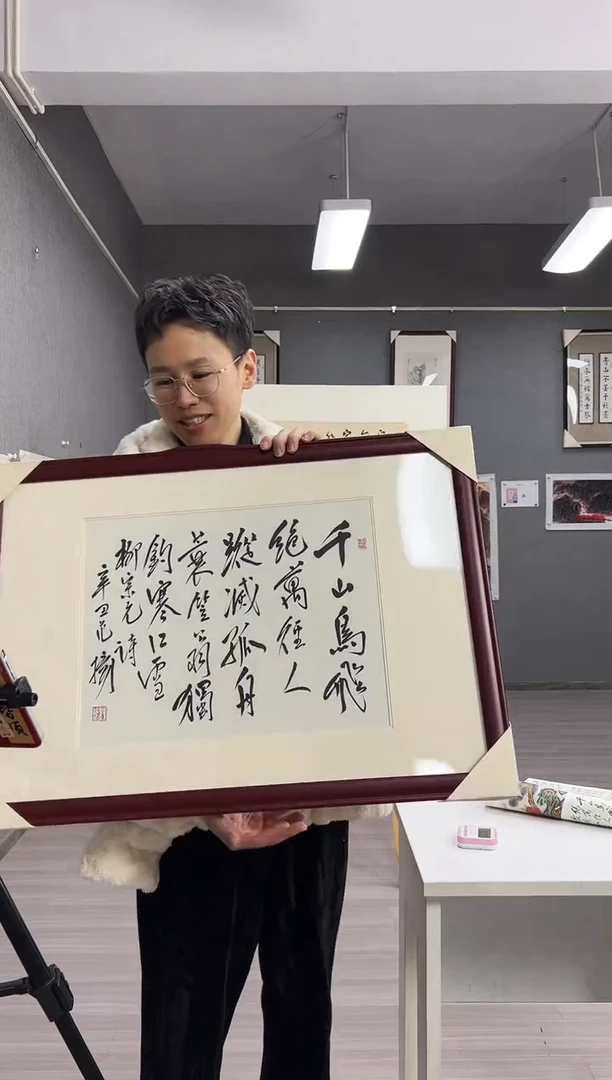 千山鳥飛
絶萬徑人
蹤滅孤舟
蓑笠翁獨
釣寒江雪
柳宗元詩
辛丑范